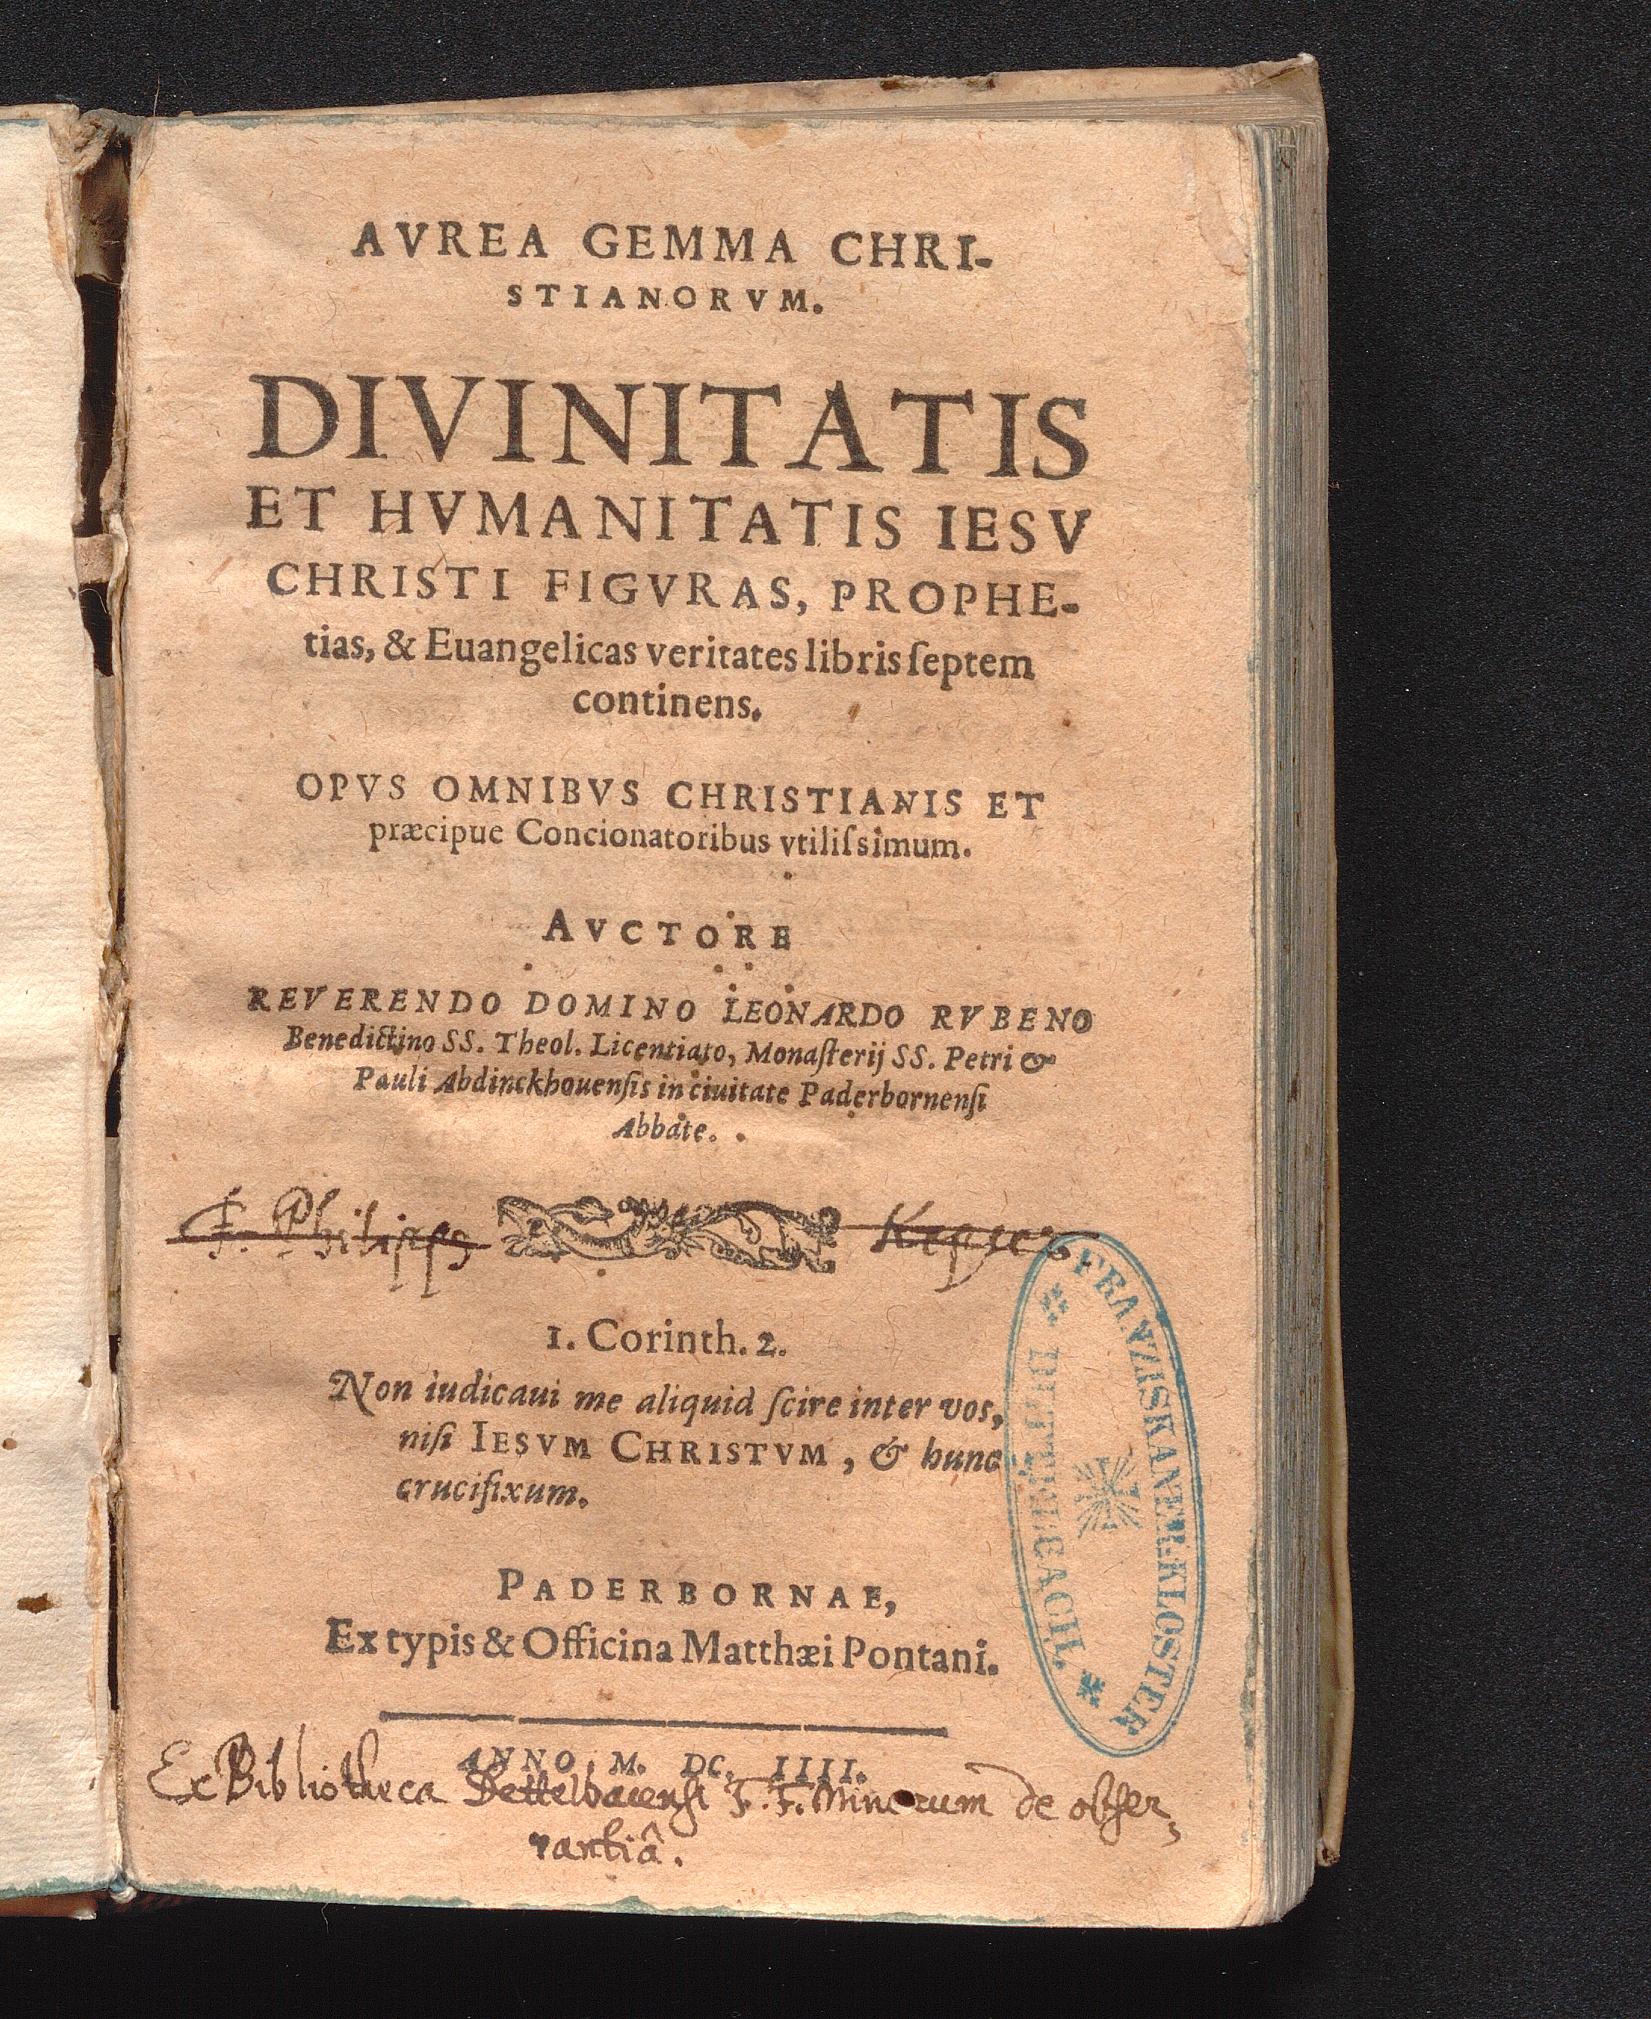 AVREA GEMMA CHRI-
STIANORVM.
DIVINITATIS
ET HVMANITATIS IESV
CHRISTI FIGVRAS, PROPHE-
tias, & Euangelicas veritates libris ſeptem
continens.
OPVS OMNIBVS CHRISTIANIS ET
præcipue Concionatoribus vtiliſsimum.
AVCTORE
REVERENDO DOMINO LEONARDO RVBENO
Benedictino SS. Theol. Licentiato, Monaſterij SS. Petri &
Pauli Abdinckhouenſis in ciuitate Paderbornenſi
Abbate.
F. Philipps
1. Corinth. 2.
Non iudicaui me aliquid ſcire inter vos,
niſi IESVM CHRISTVM, & hunc
crucifixum.
FRANZISKANER-KLOSTER
DETTELBACH.
PADERBORNAE,
Ex typis & Officina Matthæi Pontani.
ANNO, M. DC. IIII.
Ex Bibliotheca Dettelbacensi F. F. Minorum de obser,
vantiâ.